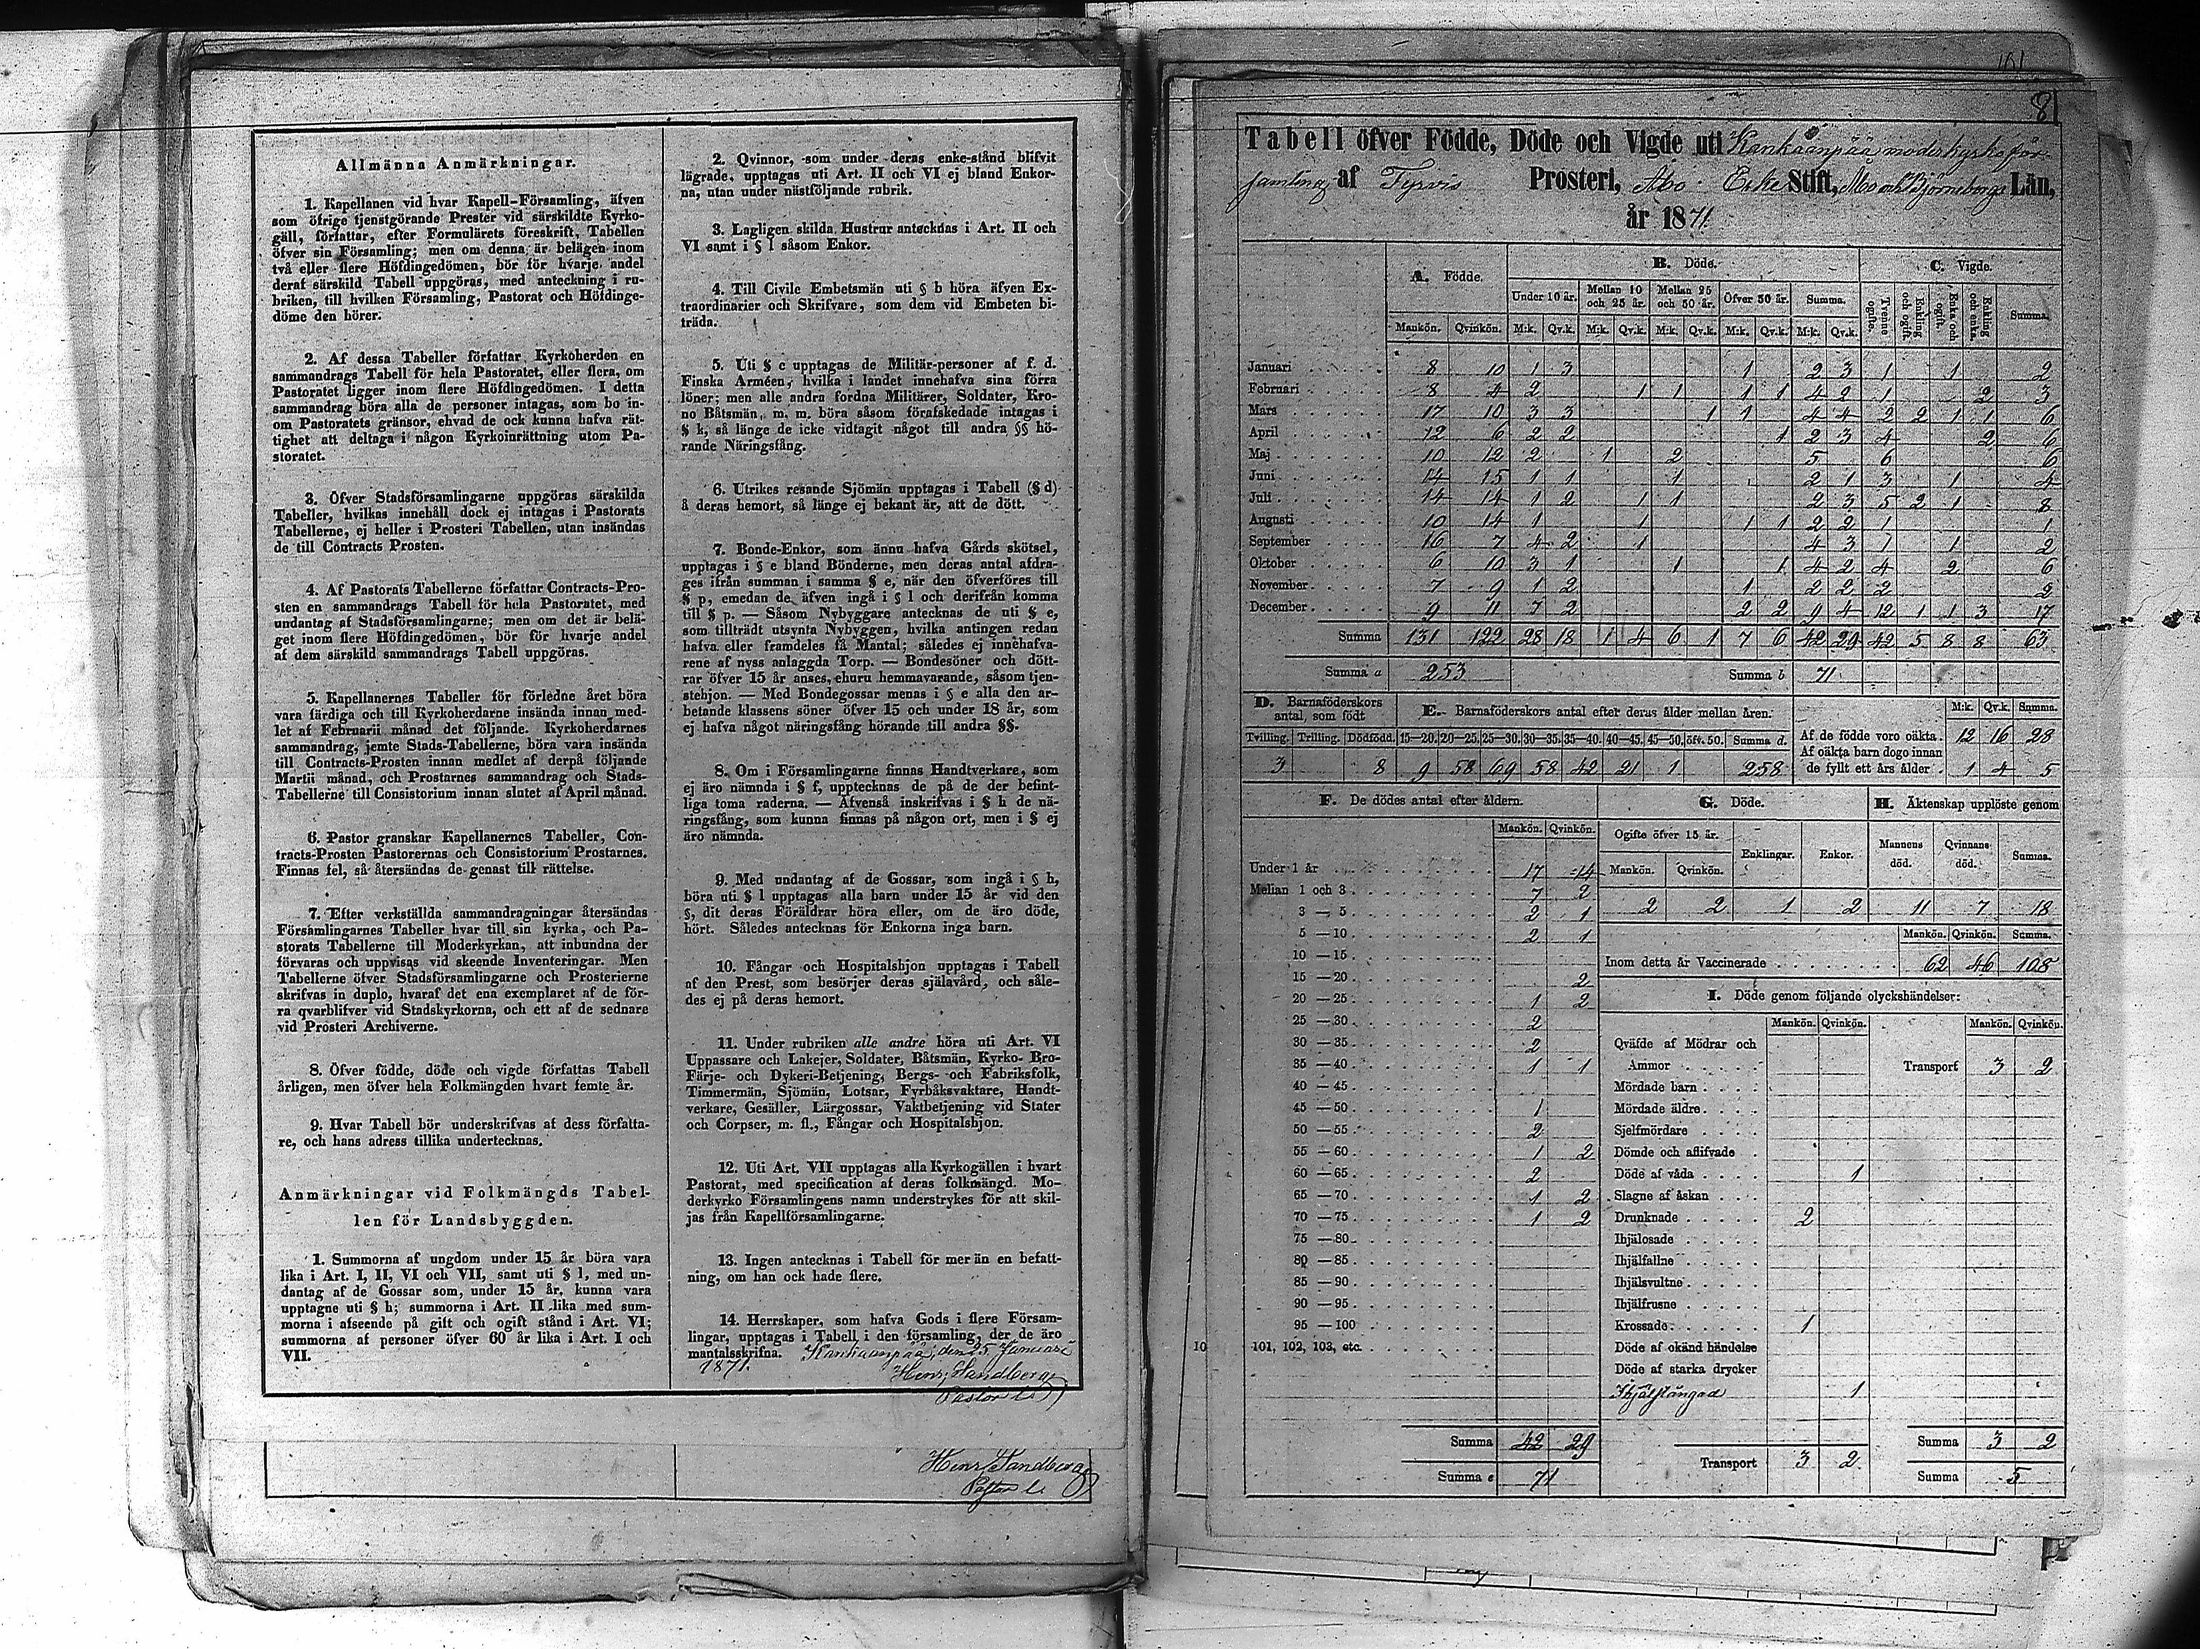 Allmänna Anmärkningar.
1. Kapellanen vid hvar Kapell-Församling, äfven
som öfrige tjenstgörande Prester vid särskildte Kyrko-
gäll, författar, efter Formulärets föreskrift, Tabellen
öfver sin Församling; men om denna är belägen inom
två eller flere Höfdingedömen, bör för hvarje andel
deraf särskild Tabell uppgöras, med anteckning i ru-
briken, till hvilken Församling, Pastorat och Höfdinge-
döme den hörer.
2. Af dessa Tabeller författar Kyrkoherden en
sammandrags Tabell för hela Pastoratet, eller flera, om
Pastoratet ligger inom flere Höfdingedömen. I detta
sammandrag böra alla de personer intagas, som bo in-
om Pastoratets gränsor, ehvad de ock kunna hafva rät-
tighet att deltaga i någon Kyrkoinrättning utom Pa-
storatet.
3. Öfver Stadsförsamlingarne uppgöras särskilda
Tabeller, hvilkas innehåll dock ej intagas i Pastorats
Tabellerne, ej heller i Prosteri Tabellen, utan insändas
de till Contracts Prosten.
4. Af Pastorats Tabellerne författar Contracts-Pro-
sten en sammandrags Tabell för hela Pastoratet, med
undantag af Stadsförsamlingarne; men om det är belä-
get inom flere Höfdingedömen, bör för hvarje andel
af dem särskild sammandrags Tabell uppgöras.
5. Kapellanernes Tabeller för förledne året böra
vara färdiga och till Kyrkoherdarne insända innan med-
let af Februarii månad det följande. Kyrkoherdarnes
sammandrag, jemte Stads-Tabellerne, böra vara insända
till Contracts-Prosten innan medlet af derpå följande
Martii månad, och Prostarnes sammandrag och Stads-
Tabellerne till Consistorium innan slutet af April månad.
6. Pastor granskar Kapellanernes Tabeller, Con-
tracts-Prosten Pastorernas och Consistorium Prostarnes.
Finnas fel, så återsändas de genast till rättelse.
7. Efter verkställda sammandragningar återsändas
Församlingarnes Tabeller hvar till sin kyrka, och Pa-
storats Tabellerne till Moderkyrkan, att inbundna der
förvaras och uppvisas vid skeende Inventeringar. Men
Tabellerne öfver Stadsförsamlingarne och Prosterierne
skrifvas in duplo, hvaraf det ena exemplaret af de för-
ra qvarblifver vid Stadskyrkorna, och ett af de sednare
vid Prosteri Archiverne.
8. Öfver födde, döde och vigde författas Tabell
årligen, men öfver hela Folkmängden hvart femte år.
9. Hvar Tabell bör underskrifvas af dess författa-
re, och hans adress tillika undertecknas.
Anmärkningar vid Folkmängds Tabel-
len för Landsbyggden.
1. Summorna af ungdom under 15 år böra vara
lika i Art. I, II, VI och VII, samt uti § l, med un-
dantag af de Gossar som, under 15 år, kunna vara
upptagne uti § h; summorna i Art. II lika med sum-
morna i afseende på gift och ogift stånd i Art. VI;
summorna af personer öfver 60 år lika i Art. I och
VII.
2. Qvinnor, som under deras enke-stånd blifvit
lägrade, upptagas uti Art. II och VI ej bland Enkor-
na, utan under nästföljande rubrik.
3. Lagligen skilda Hustrur antecknas i Art. II och
VI samt i § l såsom Enkor.
4. Till Civile Embetsmän uti § b höra äfven Ex-
traordinarier och Skrifvare, som dem vid Embeten bi-
träda.
5. Uti § c upptagas de Militär-personer af f. d.
Finska Arméen, hvilka i landet innehafva sina förra
löner; men alle andra fordna Militärer, Soldater, Kro-
no Båtsmän, m. m. böra såsom förafskedade intagas i
§ k, så länge de icke vidtagit något till andra §§ hö-
rande Näringsfång.
6. Utrikes resande Sjömän upptagas i Tabell (§ d)
å deras hemort, så länge ej bekant är, att de dött.
7. Bonde-Enkor, som ännu hafva Gårds skötsel,
upptagas i § e bland Bönderne, men deras antal afdra-
ges ifrån summan i samma § e, när den öfverföres till
§ p, emedan de äfven ingå i § l och derifrån komma
till § p. — Såsom Nybyggare antecknas de uti § e,
som tillträdt utsynta Nybyggen, hvilka antingen redan
hafva eller framdeles få Mantal; således ej innehafva-
rene af nyss anlaggda Torp. — Bondesöner och dött-
rar öfver 15 år anses, ehuru hemmavarande, såsom tjen-
stehjon. — Med Bondegossar menas i § e alla den ar-
betande klassens söner öfver 15 och under 18 år, som
ej hafva något näringsfång hörande till andra §§.
8. Om i Församlingarne finnas Handtverkare, som
ej äro nämnda i § f, upptecknas de på de der befint-
liga toma raderna. — Äfvenså inskrifvas i § h de nä-
ringsfång, som kunna finnas på någon ort, men i § ej
äro nämnda.
9. Med undantag af de Gossar, som ingå i § h,
böra uti § l upptagas alla barn under 15 år vid den
§, dit deras Föräldrar höra eller, om de äro döde,
hört. Således antecknas för Enkorna inga barn.
10. Fångar och Hospitalshjon upptagas i Tabell
af den Prest, som besörjer deras själavård, och såle-
des ej på deras hemort.
11. Under rubriken alle andre höra uti Art. VI
Uppassare och Lakejer, Soldater, Båtsmän, Kyrko- Bro-
Färje- och Dykeri-Betjening, Bergs- och Fabriksfolk,
Timmermän, Sjömän, Lotsar, Fyrbåksvaktare, Handt-
verkare, Gesäller, Lärgossar, Vaktbetjening vid Stater
och Corpser, m. fl., Fångar och Hospitalshjon.
12. Uti Art. VII upptagas alla Kyrkogällen i hvart
Pastorat, med specification af deras folkmängd. Mo-
derkyrko Församlingens namn understrykes för att skil-
jas från Kapellförsamlingarne.
13. Ingen antecknas i Tabell för mer än en befatt-
ning, om han ock hade flere.
14. Herrskaper, som hafva Gods i flere Försam-
lingar, upptagas i Tabell i den församling, der de äro
mantalsskrifna. Kankaanpää, den 25 Januari
1871. Henr. Sandberg
Pastor
Henr Sandberg
Pastor
101
81
Tabell öfver Födde, Döde och Vigde uti Kankaanpää moderkyrkoför-
samling af Tyrvis Prosteri, Åbo Erke Stift, Åbo och Björneborgs Län,
år 1871.
A. Födde. B. Döde. C. Vigde.
Under 10 år. Mellan 10 och 25 år. Mellan 25 och 50 år. Öfver 50 år. Summa. Trenne ogifte. Enkling och ogift. Enka och ogift. Enkling och enka. Summa.
Mankön. Qvinkön. M:k. Qv.k. M:k. Qv.k. M:k. Qv.k. M:k. Qv.k. M:k. Qv.k.
Januari 8 10 1 3 1 2 3 1 1 2
Februari 8 4 2 1 1 1 1 4 2 1 2 3
Mars 17 10 3 3 1 1 4 4 2 2 1 1 6
April 12 6 2 2 1 2 3 4 2 6
Maj 10 12 2 1 2 5 6 6
Juni 14 15 1 1 1 2 1 3 1 4
Juli 14 14 1 2 1 1 2 3 5 2 1 8
Augusti 10 14 1 1 1 1 2 2 1 1
September 16 7 4 2 1 4 3 1 1 2
Oktober 6 10 3 1 1 1 4 2 4 2 6
November 7 9 1 2 1 2 2 2 2
December 9 11 7 2 2 2 9 4 12 1 1 3 17
Summa 131 122 28 18 1 4 6 1 7 6 42 29 42 5 8 8 63
Summa a 253 Summa b 71
D. Barnaföderskors antal, som födt
Tvilling. Trilling. Dödfödd.
3 8
E. Barnaföderskors antal efter deras ålder mellan åren.
15—20. 20—25. 25—30. 30—35. 35—40. 40—45. 45—50. öft. 50. Summa d.
9 58 69 58 42 21 1 258
M:k. Qv.k. Summa.
Af de födde voro oäkta. 12 16 28
Af oäkta barn dogo innan
de fyllt ett års ålder 1 4 5
F. De dödes antal efter åldern.
Mankön. Qvinkön.
Under 1 år 17 14
Mellan 1 och 3 7 2
3 — 5 2 1
5 — 10 2 1
10 — 15
15 — 20 2
20 — 25 1 2
25 — 30 2
30 — 35 2
35 — 40 1 1
40 — 45
45 — 50 1
50 — 55 2
55 — 60 1 2
60 — 65 2
65 — 70 1 2
70 — 75 1 2
75 — 80
80 — 85
85 — 90
90 — 95
95 — 100
101, 102, 103, etc.
Summa 42 29
Summa e 71
G. Döde.
Ogifte öfver 15 år. Enklingar. Enkor.
Mankön. Qvinkön.
2 2 1 2
H. Äktenskap upplöste genom
Mannens död. Qvinnans död. Summa.
11 7 18
Mankön. Qvinkön. Summa.
Inom detta år Vaccinerade 62 46 108
I. Döde genom följande olyckshändelser:
Mankön. Qvinkön. Mankön. Qvinkön.
Qväfde af Mödrar och
Ammor Transport 3 2
Mördade barn
Mördade äldre
Sjelfmördare
Dömde och aflifvade
Döde af våda 1
Slagne af åskan
Drunknade 2
Ihjälosade
Ihjälfallne
Ihjälsvultne
Ihjälfrusne
Krossade 1
Döde af okänd händelse
Döde af starka drycker
Ihjälstångad 1
Summa 3 2
Transport 3 2
Summa 5
10